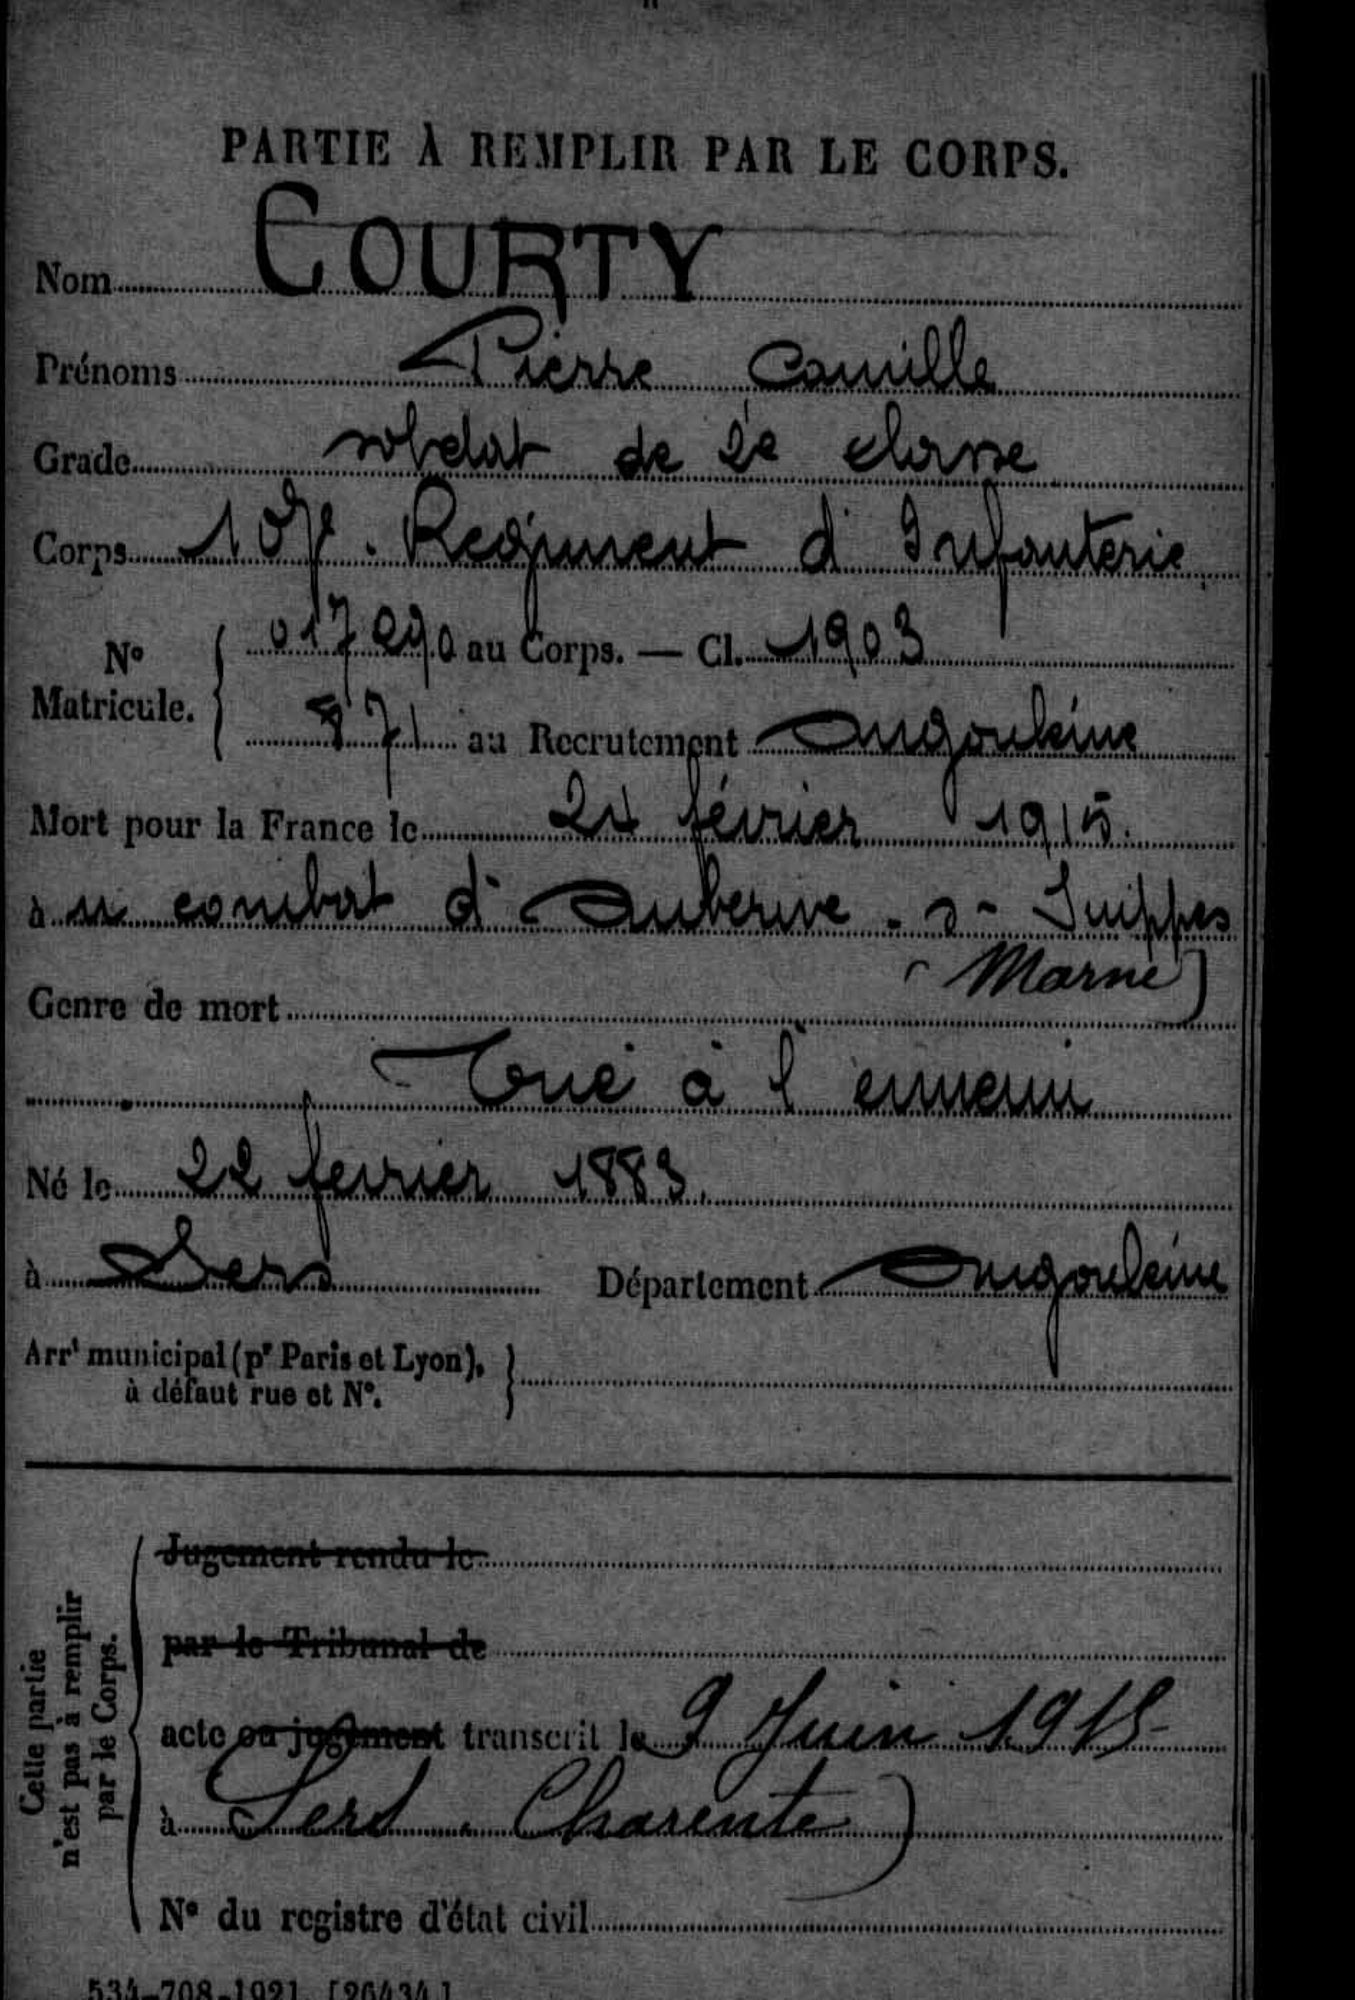 PARTIE À REMPLIR PAR LE CORPS.
Nom COURTY
Prénoms Pierre Camille
Grade soldat de 2e classe
Corps 107e Regiment d'Infanterie
N° Matricule. { 017290 au Corps. — Cl. 1903
871 au Recrutement Angoulême
Mort pour la France le 24 février 1915.
à u combat d'Auberive - s - Suippes
(Marne)
Genre de mort
Tué à l'ennemi
Né le 22 fevrier 1883.
à Sers Département Angoulême
Arrt municipal (pr Paris et Lyon), à défaut rue et N°. }
Cette partie n'est pas à remplir par le Corps.
Jugement rendu le
par le Tribunal de
acte ou jugement transcrit le 9 Juin 1915
à Sers. Charente)
N° du registre d'état civil
534-708-1921. [26434.]